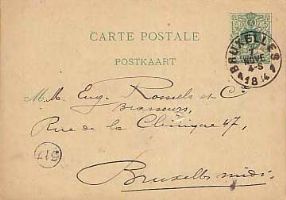 CARTE POSTALE
POSTKAART
BRUXELLES
NOVE
4-S
M.M. Eug. Rossels et C°
Brasseurs,
Rue de la Clinique 47,
517
Bruxelles midi.